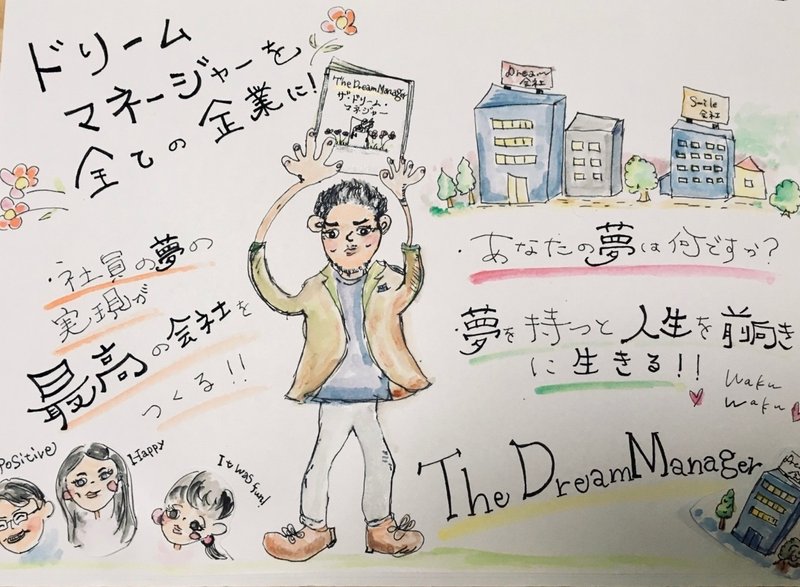 ドリーム
マネージャーを
全ての企業に!
The Dream Manager
ザ・ドリーム・
マネージャー
Dream
会社
Smile
会社
・社員の夢の
実現が
最高の会社を
つくる!!
・あなたの夢は何ですか?
夢を持つと人生を前向き
に生きる!!
waku
waku
Positive
Happy
It was fun!
The Dream Manager